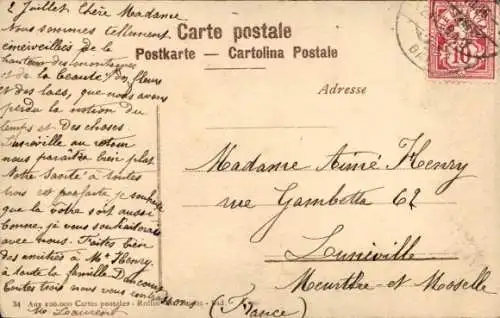 2 Juillet. Chère Madame
Nous sommes tellement
émerveillées de la
hauteur des montagnes
et de la beauté des fleurs
et des lacs, que nous avons
perdu la notion du
temps et des choses
Lunéville au retour
nous paraîtra bien plat
Notre santé à toutes
trois est parfaite je souhaite
que la vôtre soit aussi
bonne, je vous souhaiterais
avec nous. Faites bien
des amitiés à Mr Henry,
à toute la famille
toutes trois nous vous
Carte postale
Postkarte — Cartolina Postale
Adresse
10
Madame Aimé Henry
rue Gambetta 62
Lunéville
Meurthe-et-Moselle
(France)
34 Aux 100.000 Cartes postales -